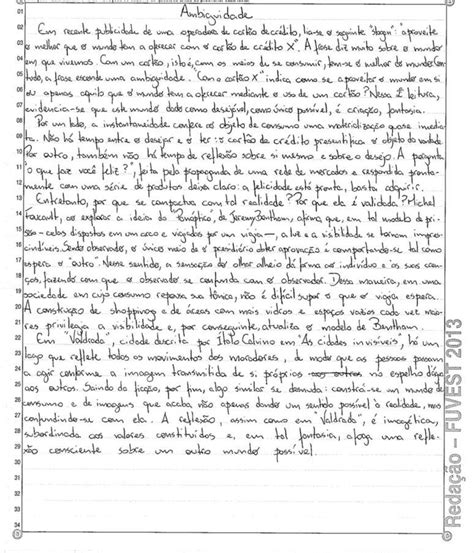 Ambiguidade
Em recente publicidade de uma operadora de cartão de crédito, lia-se o seguinte "slogan": "aproveite
o melhor que o mundo tem a oferecer com o cartão de crédito X". A frase diz muito sobre o mundo
em que vivemos. Com um cartão, isto é, com os meios de se consumir, tem-se o melhor do mundo. Con
tudo, a frase esconde uma ambiguidade. Com o cartão X" indica como se aproveitar o mundo em si
ou apenas aquilo que o mundo tem a oferecer mediante o uso de um cartão? Nessa 2ª leitura,
evidencia-se que este mundo dado como desejável, como único possível, é criação, fantasia.
Por um lado, a instantaneidade confere ao objeto de consumo uma materialização quase imedia
ta. Não há tempo entre o desejar e o ter: o cartão de crédito presentifica o objeto da vontade.
Por outro, também não há tempo de reflexão sobre si mesmo e sobre o desejo. A pergunta
"o que faz você feliz?", feita pela propaganda de uma rede de mercados e respondida pronta-
mente com uma série de produtos deixa claro: a felicidade está pronta, basta adquirir.
Entretanto, por que se compactua com tal realidade? Por que ela é validada? Michel
Foucault, ao explorar a ideia do "Panóptico", de Jeremy Bentham, afirma que, em tal modelo de pri-
são - celas dispostas em um arco e vigiados por um vigia -, a luz e a visibilidade se tornam impres-
cindíveis. Sendo observado, o único meio de o presidiário obter aprovação é comportando-se tal como
espera o "outro". Nesse sentido, a sensação do olhar alheio dá forma ao indivíduo e às suas cren-
ças, fazendo com que o observado se confunda com o observador. Dessa maneira, em uma
sociedade em cujo consumo repousa sua tônica, não é difícil supor o que o vigia espera.
A construção de shoppings e de áreas com mais vidros e espaços vazios cada vez mai-
ores privilegia a visibilidade e, por conseguinte, atualiza o modelo de Bentham.
Em "Valdrada", cidade descrita por Ítalo Calvino em "As cidades invisíveis", há um
lago que reflete todos os movimentos dos moradores, de modo que as pessoas passam
a agir conforme a imagem transmitida de si próprios no espelho d'água
aos outros. Saindo da ficção, por fim, algo similar se desnuda: constrói-se um mundo de
consumo e de imagens que acaba não apenas dando um sentido possível à realidade, mas
confundindo-se com ela. A reflexão, assim como em "Valdrada", é imagética,
subordinada aos valores constituídos e, em tal fantasia, afoga uma refle-
xão consciente sobre um outro mundo possível.
Redação – FUVEST 2013